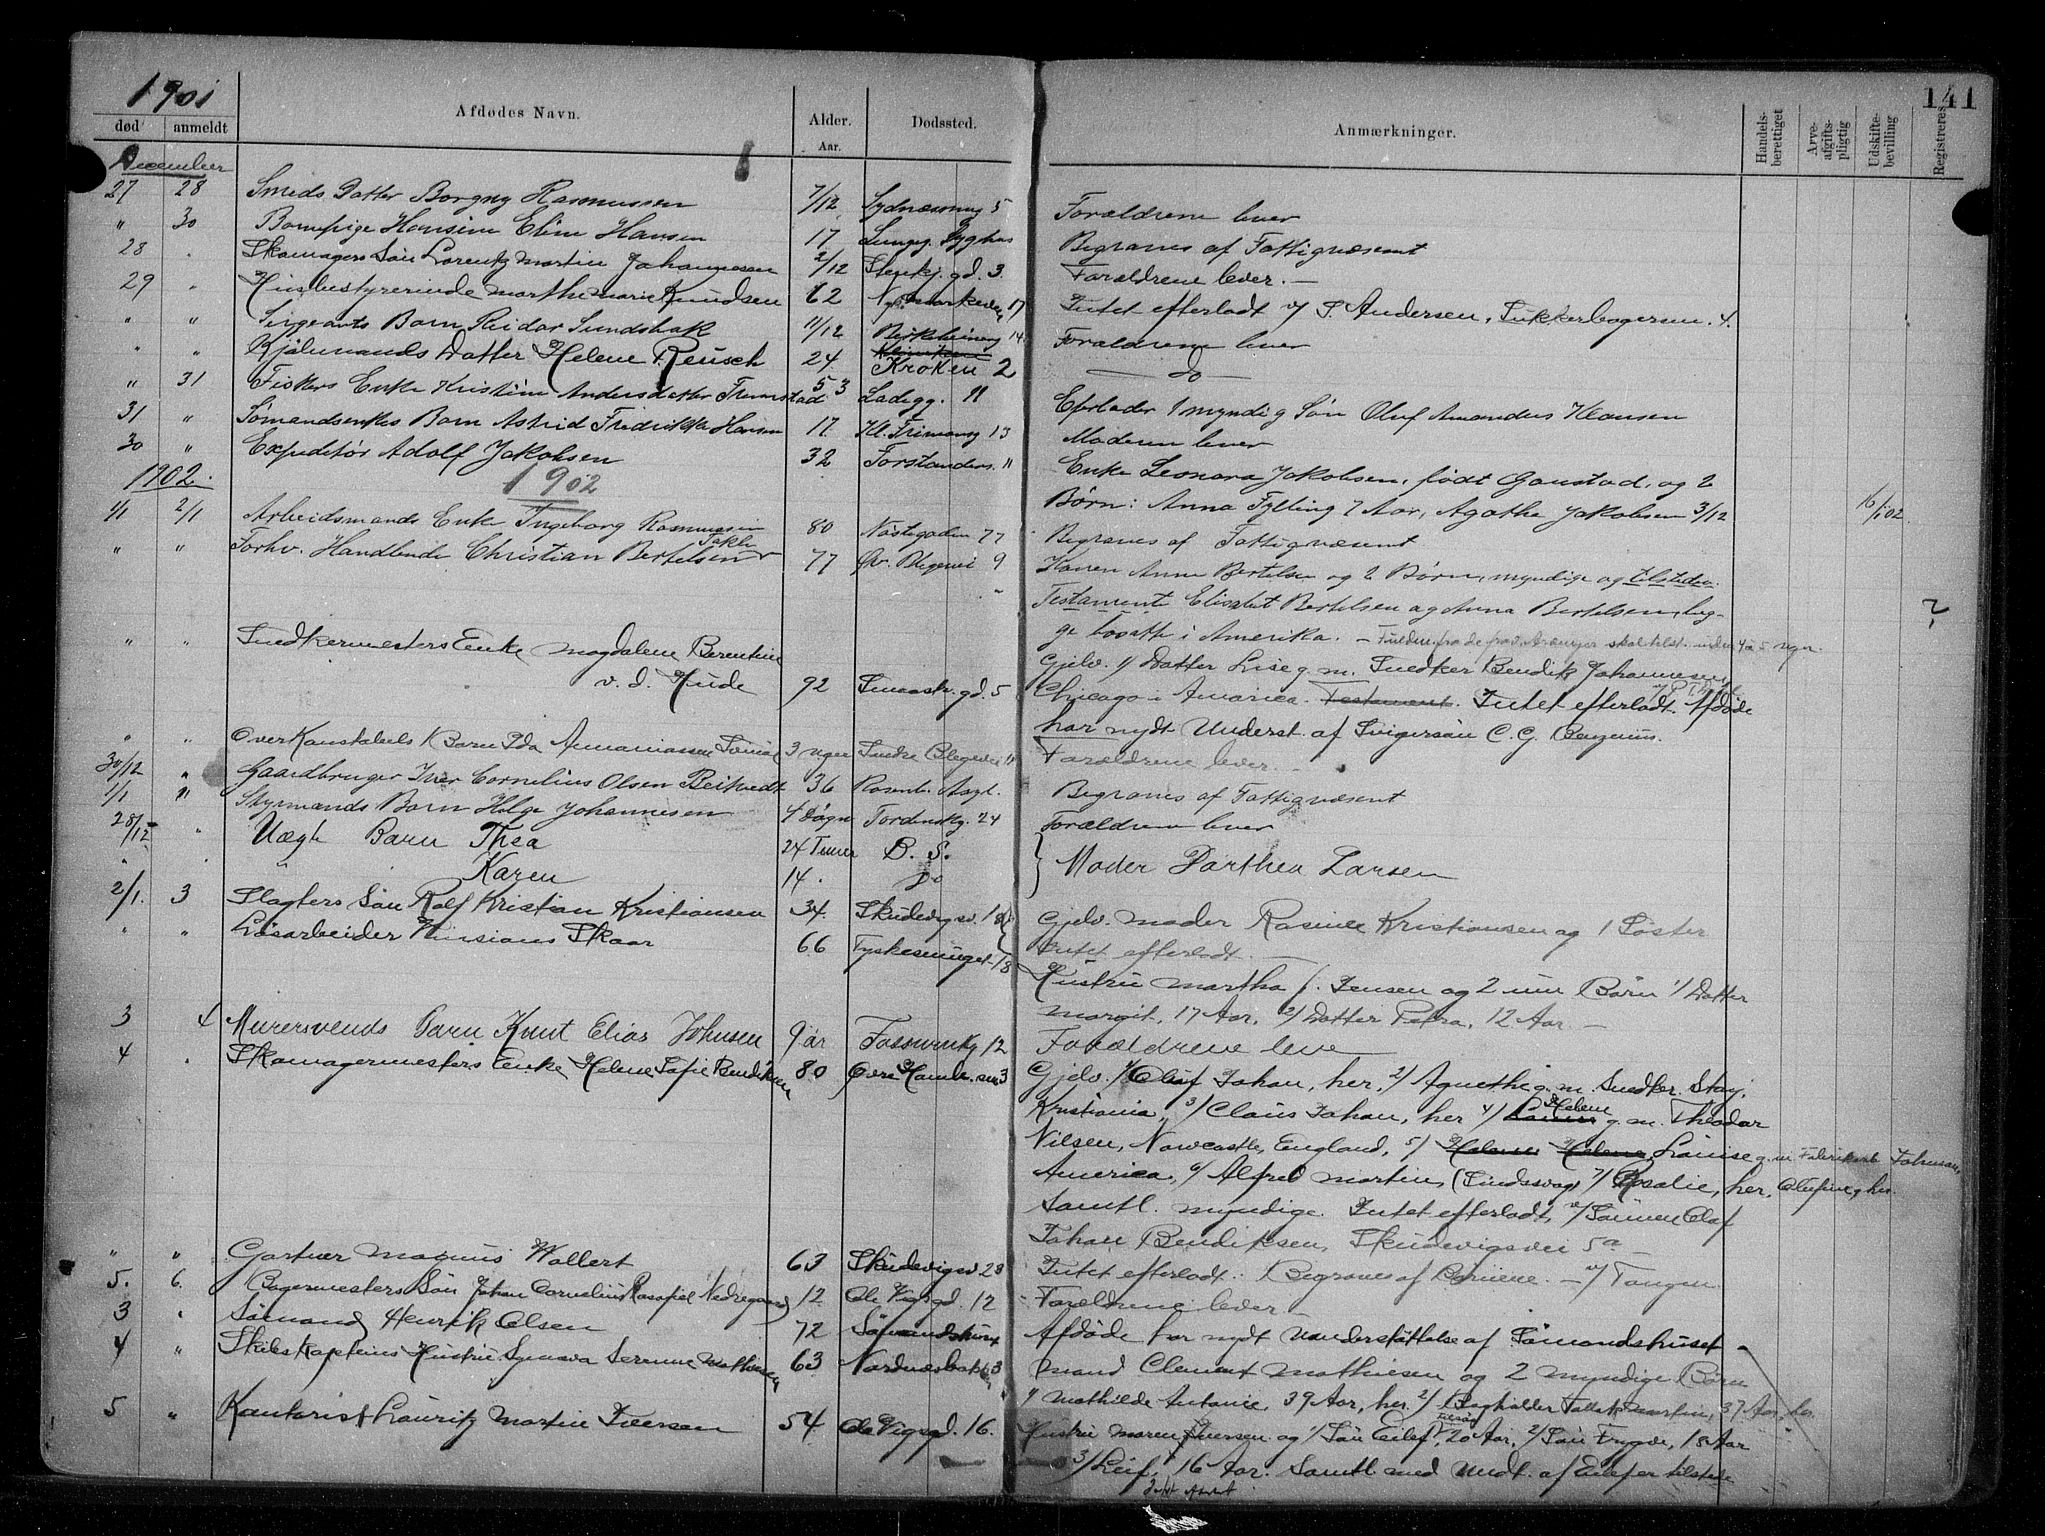 1901
141
død anmeldt Afdødes Navn. Alder. Aar. Dødssted. Anmærkninger. Handelsberettiget Arveafgiftspligtig Udskiftebevilling Registreres
December
27 28 Smeds Datter Borgny Rasmussen 7/12 Sydnæssmug 5 Forældrene lever
" 30 Barnepige Hansine Eline Hansen 17 Lungeg. Syghus Begraves af Fattigvæsent
28 " Skomagers Søn Lorentz Martin Johannesen 2/12 Stenkj. gd. 3. Forældrene lever. —
29 " Husbestyrerinde Marthe Marie Knudsen 62 17 Intet efterladt v/ S. Andersen, Sukkerbagersm. 4.
" " Sergeants Barn Reidar Sundsbak 11/12 14. Forældrene lever
" " Kjølemands Datter Helene Reusch 24 Kroken 2 — do —
" 31 Fiskers Enke Kristine Andersdatter 53 Ladegg. 11 Efterlader 1 myndig Søn Oluf Amandus Hansen
31 " Sømandsenkes Barn Astrid Fredrikke Hansen 17 Kl. 13 Moderen lever
30 " Expeditør Adolf Jakobsen 32 Forstanders. 11 Enke Leonora Jakobsen, født Gaustad, og 2
1902. 1902 Børn: Anna Fylling 7 Aar, Agathe Jakobsen 3/12 16/1 02
1/1 2/1 Arbeidsmands Enke Ingeborg Rasmussen 80 Nøstegaden 77 Begraves af Fattigvæsent
" " Forhv. Handlende Christian Bertelsen 77 Øv. Blegevei 9 Konen Anne Bertelsen og 2 Børn, myndige og tilstede.
Testamente Elisabet Bertelsen og Anna Bertelsen, beg-
ge bosatte i Amerika. —
?
" " Snedkermesters Enke Magdalene Berentine Gjelv. 1/ Datter Lise g. m. Snedker Bendik Johannesen
v. d. Hude 92 gd. 5 Chicago i America. Testament. Intet efterladt. Afdøde
har nydt Underst. af Svigersøn C. G.
" " Overkonstabels Barn Ida Annaniassen 3 uger Søndre Blegevei 11 Forældrene lever. —
30/12 " Gaardbruger Iver Cornelius Olsen 36 Rosenb. Asyl. Begraves af Fattigvæsent
1/1 " Styrmands Barn Helge Johannesen 4 Døgn Tordenskj. 24 Forældrene lever
28/12 " Uægte Barn Thea 24 Timer D. S.
" " Karen 14 " Do Moder Dorthea Larsen
2/1. 3 Slagters Søn Rolf Kristian Kristiansen 34. Skudevigsv. 18 Gjelv. Moder Rasine Kristiansen og 1 Søster
Intet efterladt. —
" " Løsarbeider Skaar 66 Tyskesmuget 18 Hustru Martha f. Jensen og 2 um Børn 1/ Datter
Margit, 17 Aar, 2/ Datter Petra, 12 Aar —
3 4 Murersvends Barn Knut Elias Johnsen 9 år Fosswinkg 12 Forældrene leve
4 " Skomagermesters Enke Helene Sofie Bendiksen 80 Øvre Hamb. sm 3 Gjelv. 1/ Olaf Johan, her, 2/ Agnethe g. m. Snedker
Kristiania, 3/ Claus Johan, her 4/ Helene g. m. Theodor
Nilsen, Newcastle, England, 5/ Louise g. m. Fabrikarb Johnsen,
America, 6/ Alfred Martin, 7/ Rosalie, her,
Samtl. myndige. Intet efterladt, v/ Sønnen Olaf
Johan Bendiksen, Skudevigsvei 5a —
" " Gartner Magnus Wallert 63 Skudevigsv. 28 Intet efterladt. Begraves af Børnene. — v/ Tangen
5. 6. Bagermesters Søn Johan Cornelius Nedregaard 12 Ole Vigsgd. 12 Forældrene lever —
3 " Sømand Henrik Olsen 72 Sømandshuset Afdøde har nydt Understøttelse af Sømandshuset
4 " Skibskapteins Hustru Synneva Serenne Mathiesen 63 Nordnæsbakken 3 Mand Clement Mathiesen og 2 myndige Børn
1/ Mathilde Antonie, 39 Aar, her. 2/ Bogholder Martin, 37 Aar, her.
5 " Kontorist Lauritz Martin Iversen 54 Ole Vigsgd. 16. Hustru Maren Iversen og 1/ Søn Eilef, 20 Aar, 2/ Søn Trygve, 18 Aar
3/ Leif, 16 Aar. Samtl. med Undt. af Eilef er tilstede